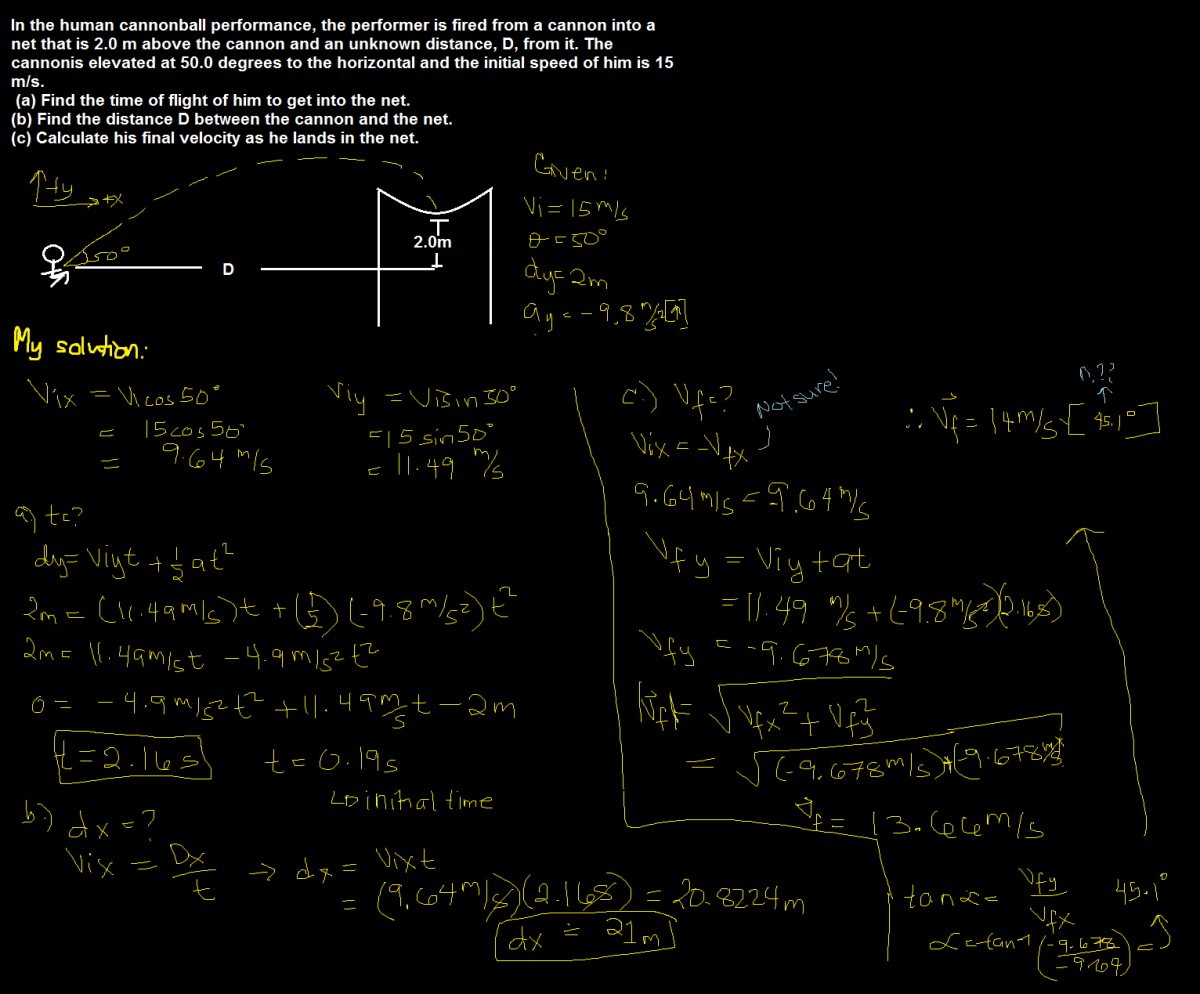 In the human cannonball performance, the performer is fired from a cannon into a
net that is 2.0 m above the cannon and an unknown distance, D, from it. The
cannonis elevated at 50.0 degrees to the horizontal and the initial speed of him is 15
m/s.
(a) Find the time of flight of him to get into the net.
(b) Find the distance D between the cannon and the net.
(c) Calculate his final velocity as he lands in the net.
↑+y
→+x
50°
D
2.0m
Given:
Vi = 15 m/s
θ = 50°
dy = 2m
ay = -9.8 m/s² [↑]
My solution:
Vix = Vi cos 50°
= 15 cos 50°
= 9.64 m/s
Viy = Vi sin 50°
= 15 sin 50°
= 11.49 m/s
a) t=?
dy = Viyt + 1/2 at²
2m = (11.49 m/s)t + (1/2)(-9.8 m/s²)t²
2m = 11.49 m/s t - 4.9 m/s² t²
0 = -4.9 m/s² t² + 11.49 m/s t - 2m
t = 2.16 s
t = 0.19s
↳ initial time
b) dx = ?
Vix = Dx/t → dx = Vixt
= (9.64 m/s)(2.16s) = 20.8224 m
dx = 21m
c.) Vf = ?
Not sure!
Vix = -Vfx
9.64 m/s = 9.64 m/s
Vfy = Viy + at
= 11.49 m/s + (-9.8 m/s²)(2.16s)
Vfy = -9.678 m/s
|Vf| = √Vfx² + Vfy²
= √(-9.678 m/s)+(9.678 m/s)
Vf = 13.66 m/s
tan α = Vfy/Vfx
α = tan⁻¹(-9.678/-9.64) = 45.1°
∴ Vf = 14 m/s [45.1°]
n.??